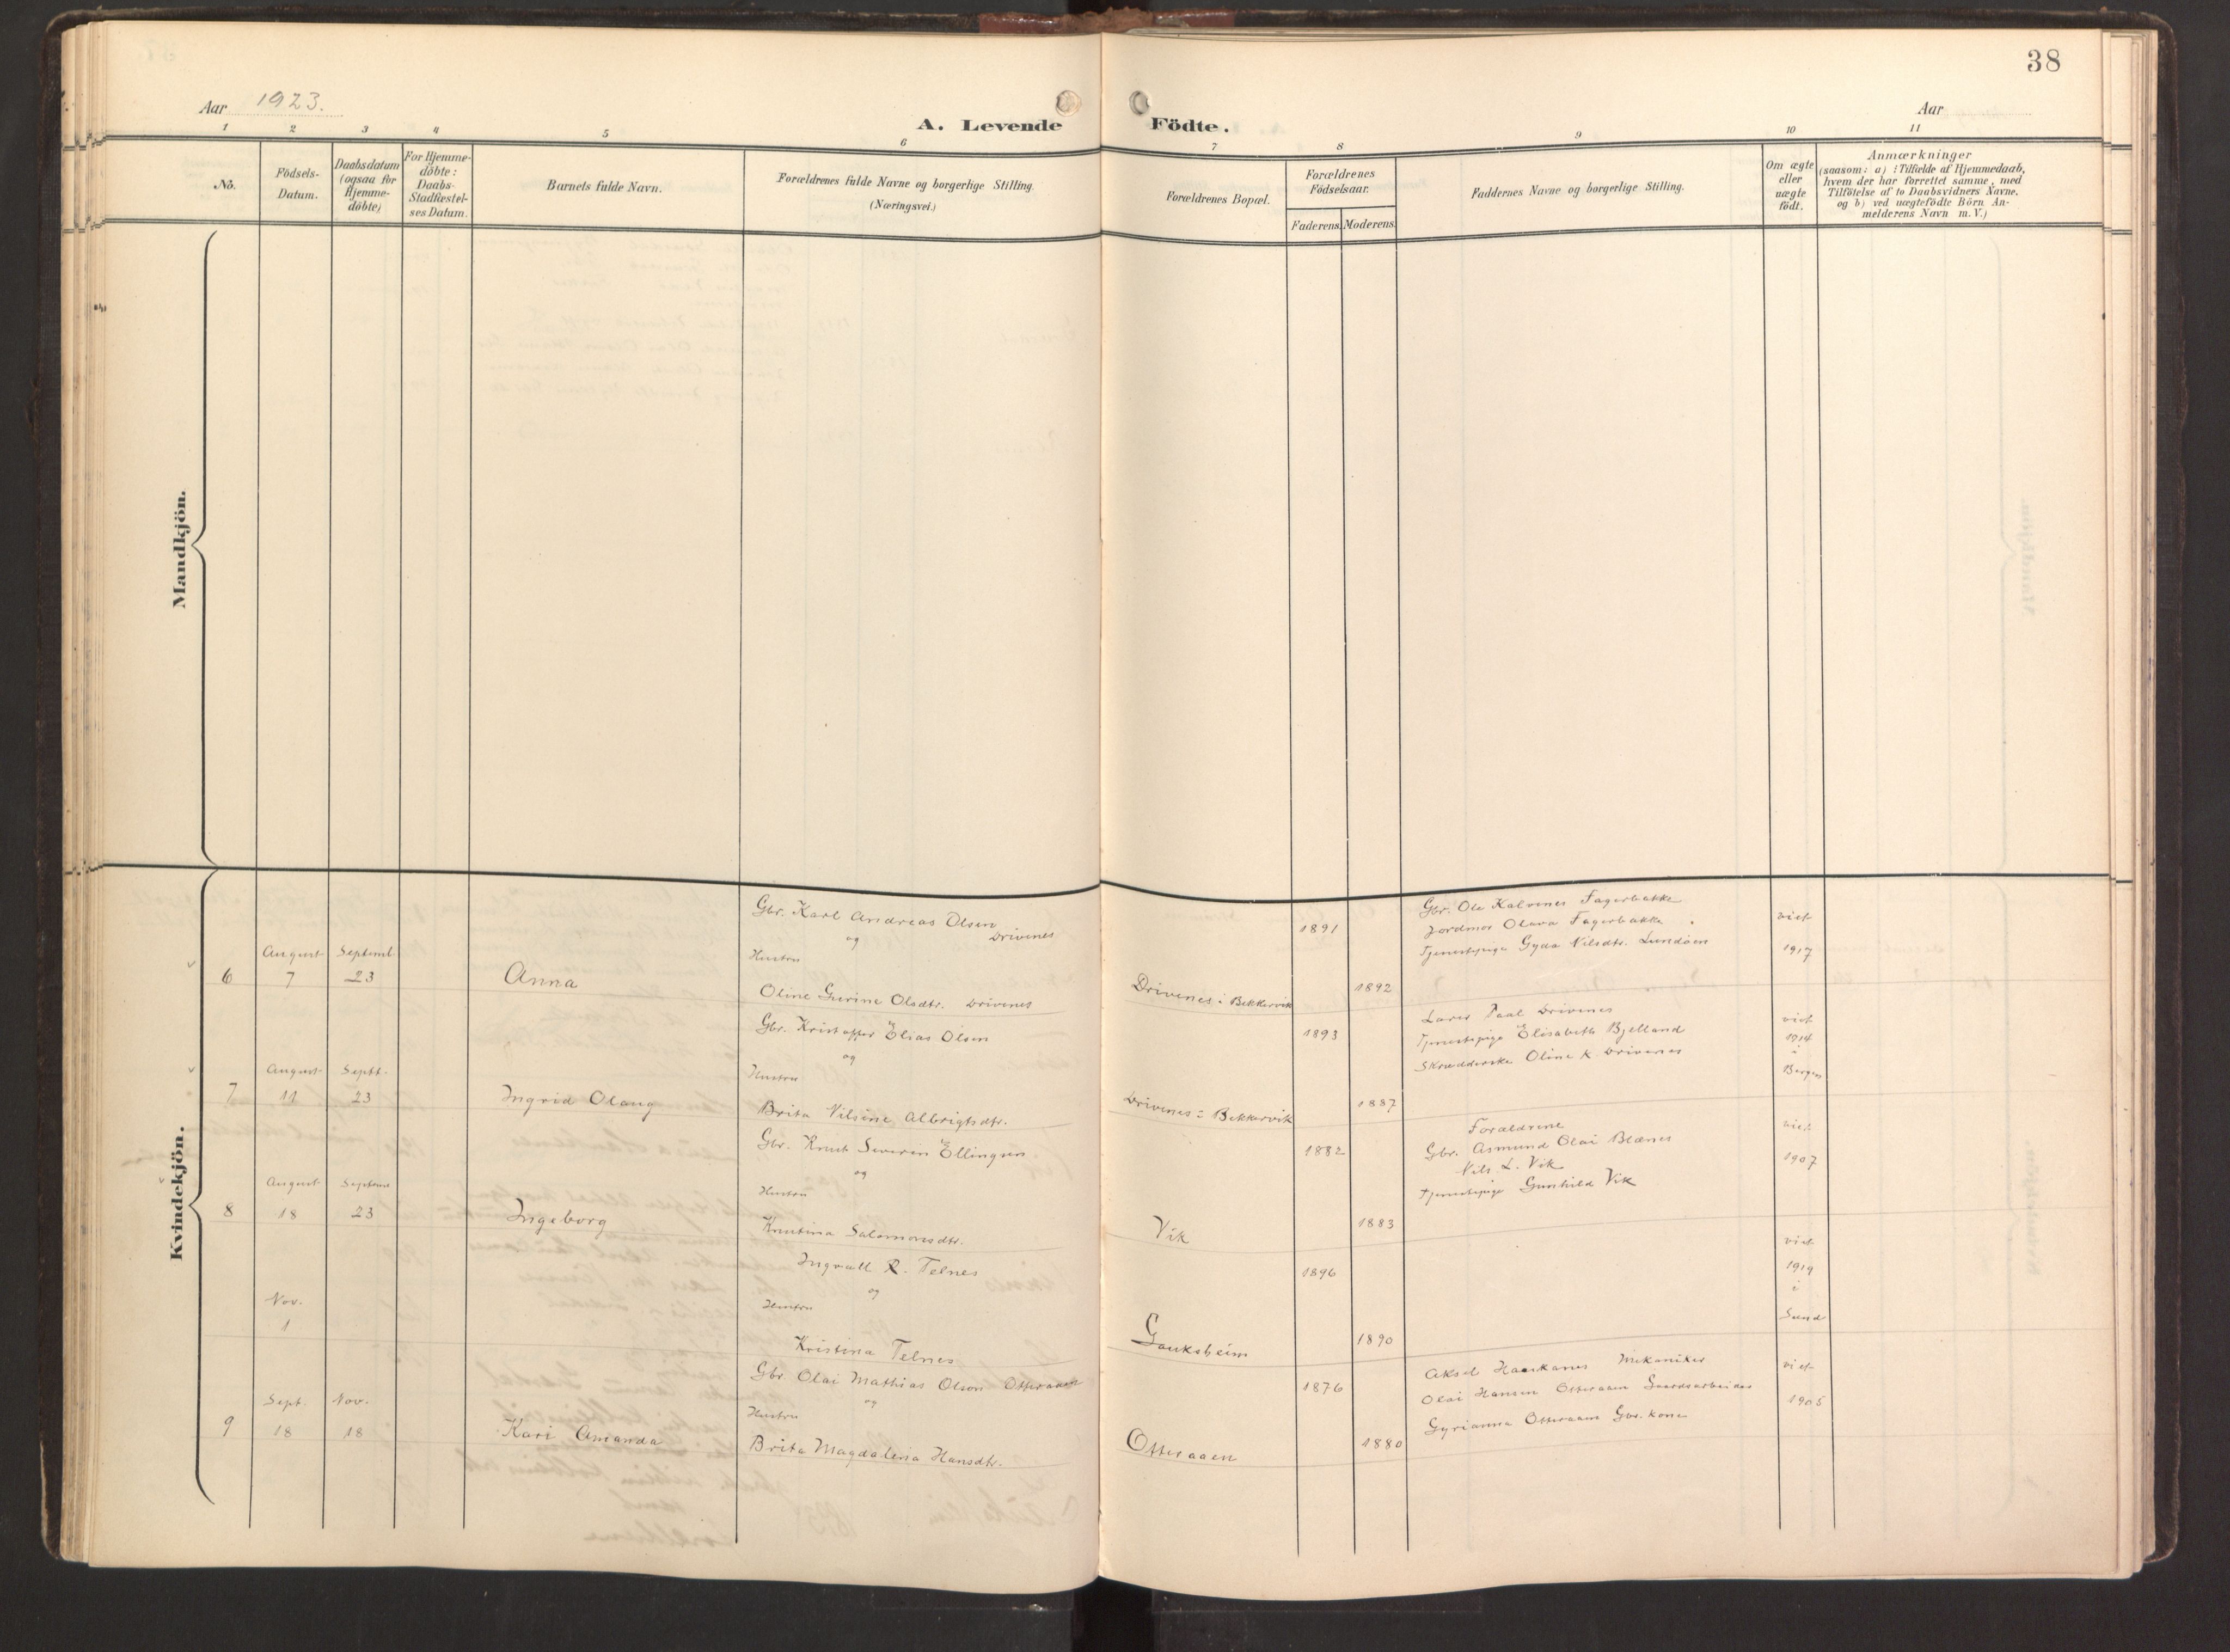 38
Aar 1923.
A. Levende Födte.
Aar
1 2 3 4 5 6 7 8 9 10 11
No.
Födsels-
Datum.
Daabsdatum
(ogsaa for
Hjemme-
döbte)
For Hjemme-
döbte:
Daabs-
Stadfæstel-
ses Datum.
Barnets fulde Navn.
Forældrenes fulde Navne og borgerlige Stilling.
(Næringsvei.)
Forældrenes Bopæl.
Forældrenes
Födselsaar.
Faderens. Moderens.
Faddernes Navne og borgerlige Stilling.
Om ægte
eller
uægte
födt.
Anmærkninger
(saasom: a) i Tilfælde af Hjemmedaab,
hvem der har forrettet samme, med
Tilföielse af to Daabsvidners Navne,
og b) ved uægtefödte Börn An-
melderens Navn m.V.)
Mandkjön.
Kvindekjön.
6
August
7
Septemb
23
Anna
Gbr. Karl Andreas Olsen
og Drivenes
Hustru
Oline Gurine Olsdtr. Drivenes
Drivenes i Bekkervik
1891
1892
Gbr. Ole Kalvenes Fagerbakke
Jordmor Olava Fagerbakke
Tjenestepige Gyda Nilsdtr. Lundöen
viet
1917
7
August
11
Septt.
23
Ingrid Olaug
Gbr. Kristoffer Elias Olsen
og
Hustru
Brita Nilsine Albrigtsdtr.
Drivenes i Bekkervik
1893
1887
Lars Paal Drivenes
Tjenestepige Elisabeth Bjelland
Skrædderske Oline K. Drivenes
viet
1914
i
Bergen
8
August
18
Septemb
23
Ingeborg
Gbr. Knut Severin Ellingsen
og
Hustru
Knutina Salomonsdtr.
Vik
1882
1883
Forældrene
Gbr. Asmund Olai Blænes
Nils L. Vik
Tjenestepige Gunhild Vik
viet
1907
Nov.
1
Ingvall R. Telnes
og
Hustru
Kristina Telnes
Gauksheim
1896
1890
viet
1919
i
Sund
9
Sept.
18
Nov.
18
Kari Amanda
Gbr. Olai Mathias Olson Otteraaen
og
Hustru
Brita Magdalena Hansdtr.
Otteraaen
1876
1880
Aksel Haakanes Mekaniker
Olai Hansen Otteraaen Gaardsarbeider
Gyrianna Otteraaen Gbr. kone
viet
1905